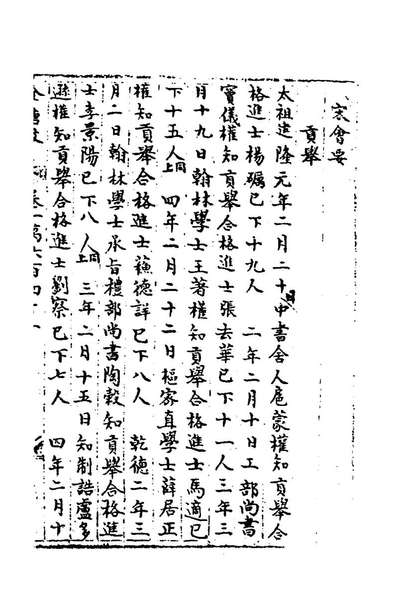 宋會要
貢舉
太祖建隆元年二月二十日中書舍人扈蒙權知貢舉合
格進士楊礪已下十九人 二年二月十日工部尚書
竇儀權知貢舉合格進士張去華已下十一人三年三
月十九日翰林學士王著權知貢舉合格進士馬適已
下十五人同上 四年二月二十二日樞密直學士薛居正
權知貢舉合格進士蘇德詳已下八人 乾德二年三
月二日翰林學士承旨禮部尚書陶穀知貢舉合格進
士李景陽已下八人同上 三年二月十五日知制誥盧多
遜權知貢舉合格進士劉察已下七人 四年二月十
卷一萬六百四十